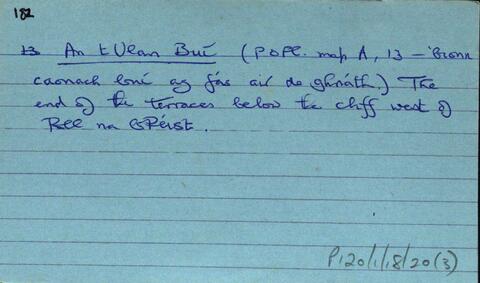 182
13 An tUlan Buí (POPl. map A, 13 – 'Bíonn
caonach buí ag fás air de ghnáth.) The
end of the terraces below the cliff west of
Poll na bPéist.
P120/1/18/20(3)